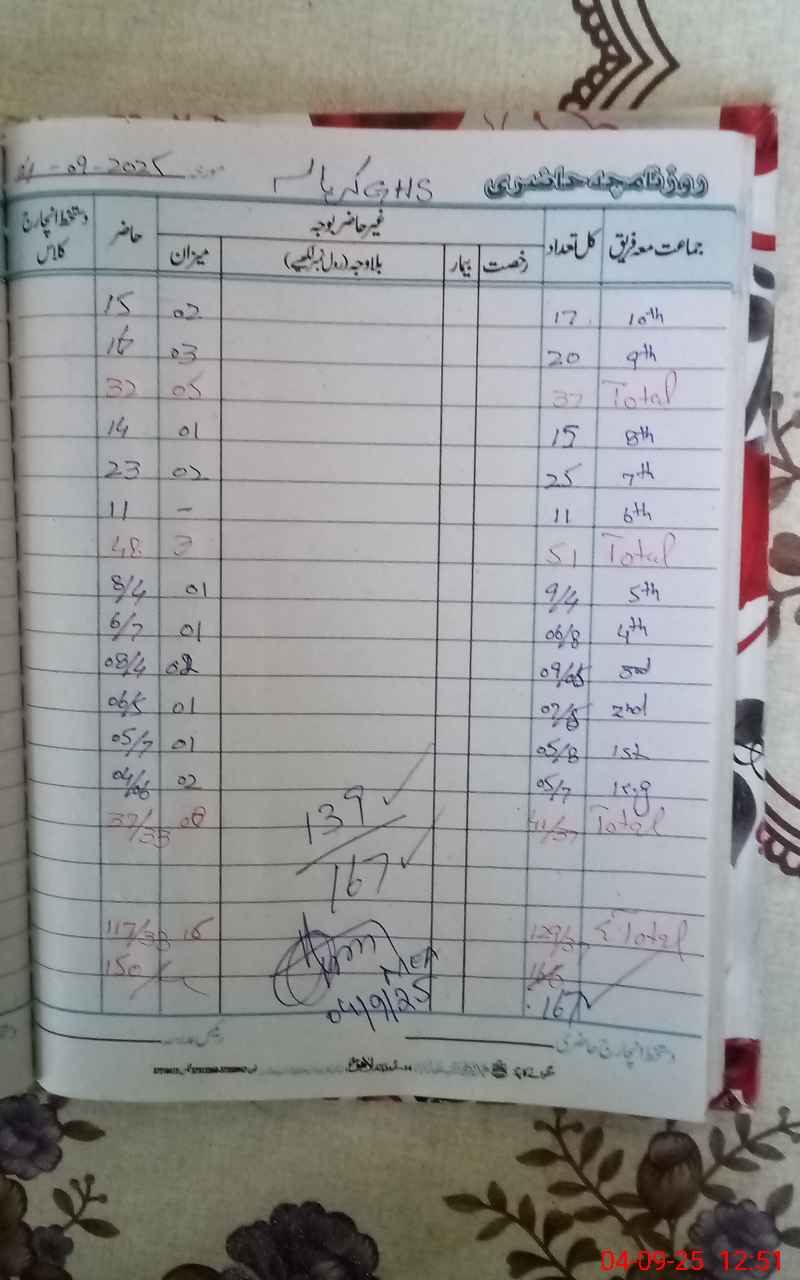 روزنامچہ حاضری GHS مورخہ 04-09-2025
جماعت معہ فریق کل تعداد غیر حاضر بوجہ حاضر دستخط انچارج کلاس
رخصت بیمار بلاوجہ (رول نمبر لکھیے) میزان
10th 17 02 15
9th 20 03 16
Total 37 05 32
8th 15 01 14
7th 25 02 23
6th 11 - 11
Total 51 3 48
5th 9/4 01 8/4
4th 06/8 01 6/7
3rd 09/05 02 08/4
2nd 07/5 01 06/5
1st 05/8 01 05/7
k.g 05/7 02 04/06
139
Total 41/37 08 37/33
167
Σ Total 129/37 16 117/33
MEA 150
167 04/9/25
دستخط انچارج حاضری رئیس مدرسہ
04-09-25 12:51